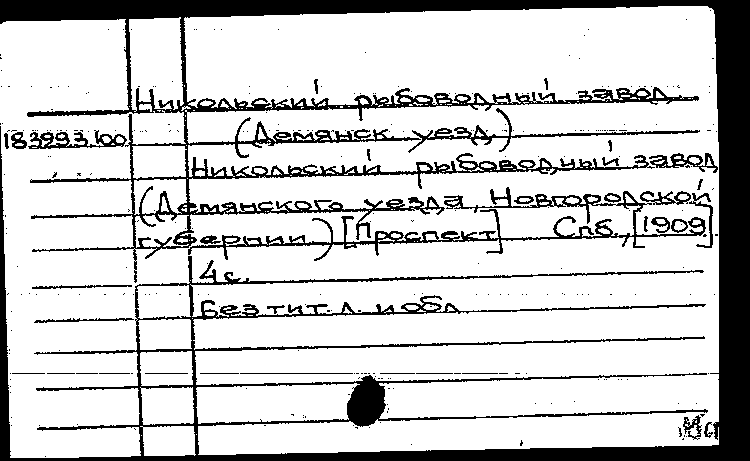 Никольский рыбоводный завод
(Демянск. уезд.)
183993.100
Никольский рыбоводный завод
(Демянского уезда, Новгородской
губернии.) [Проспект] Спб., [1909]
4 с.
Без тит. л. и обл.